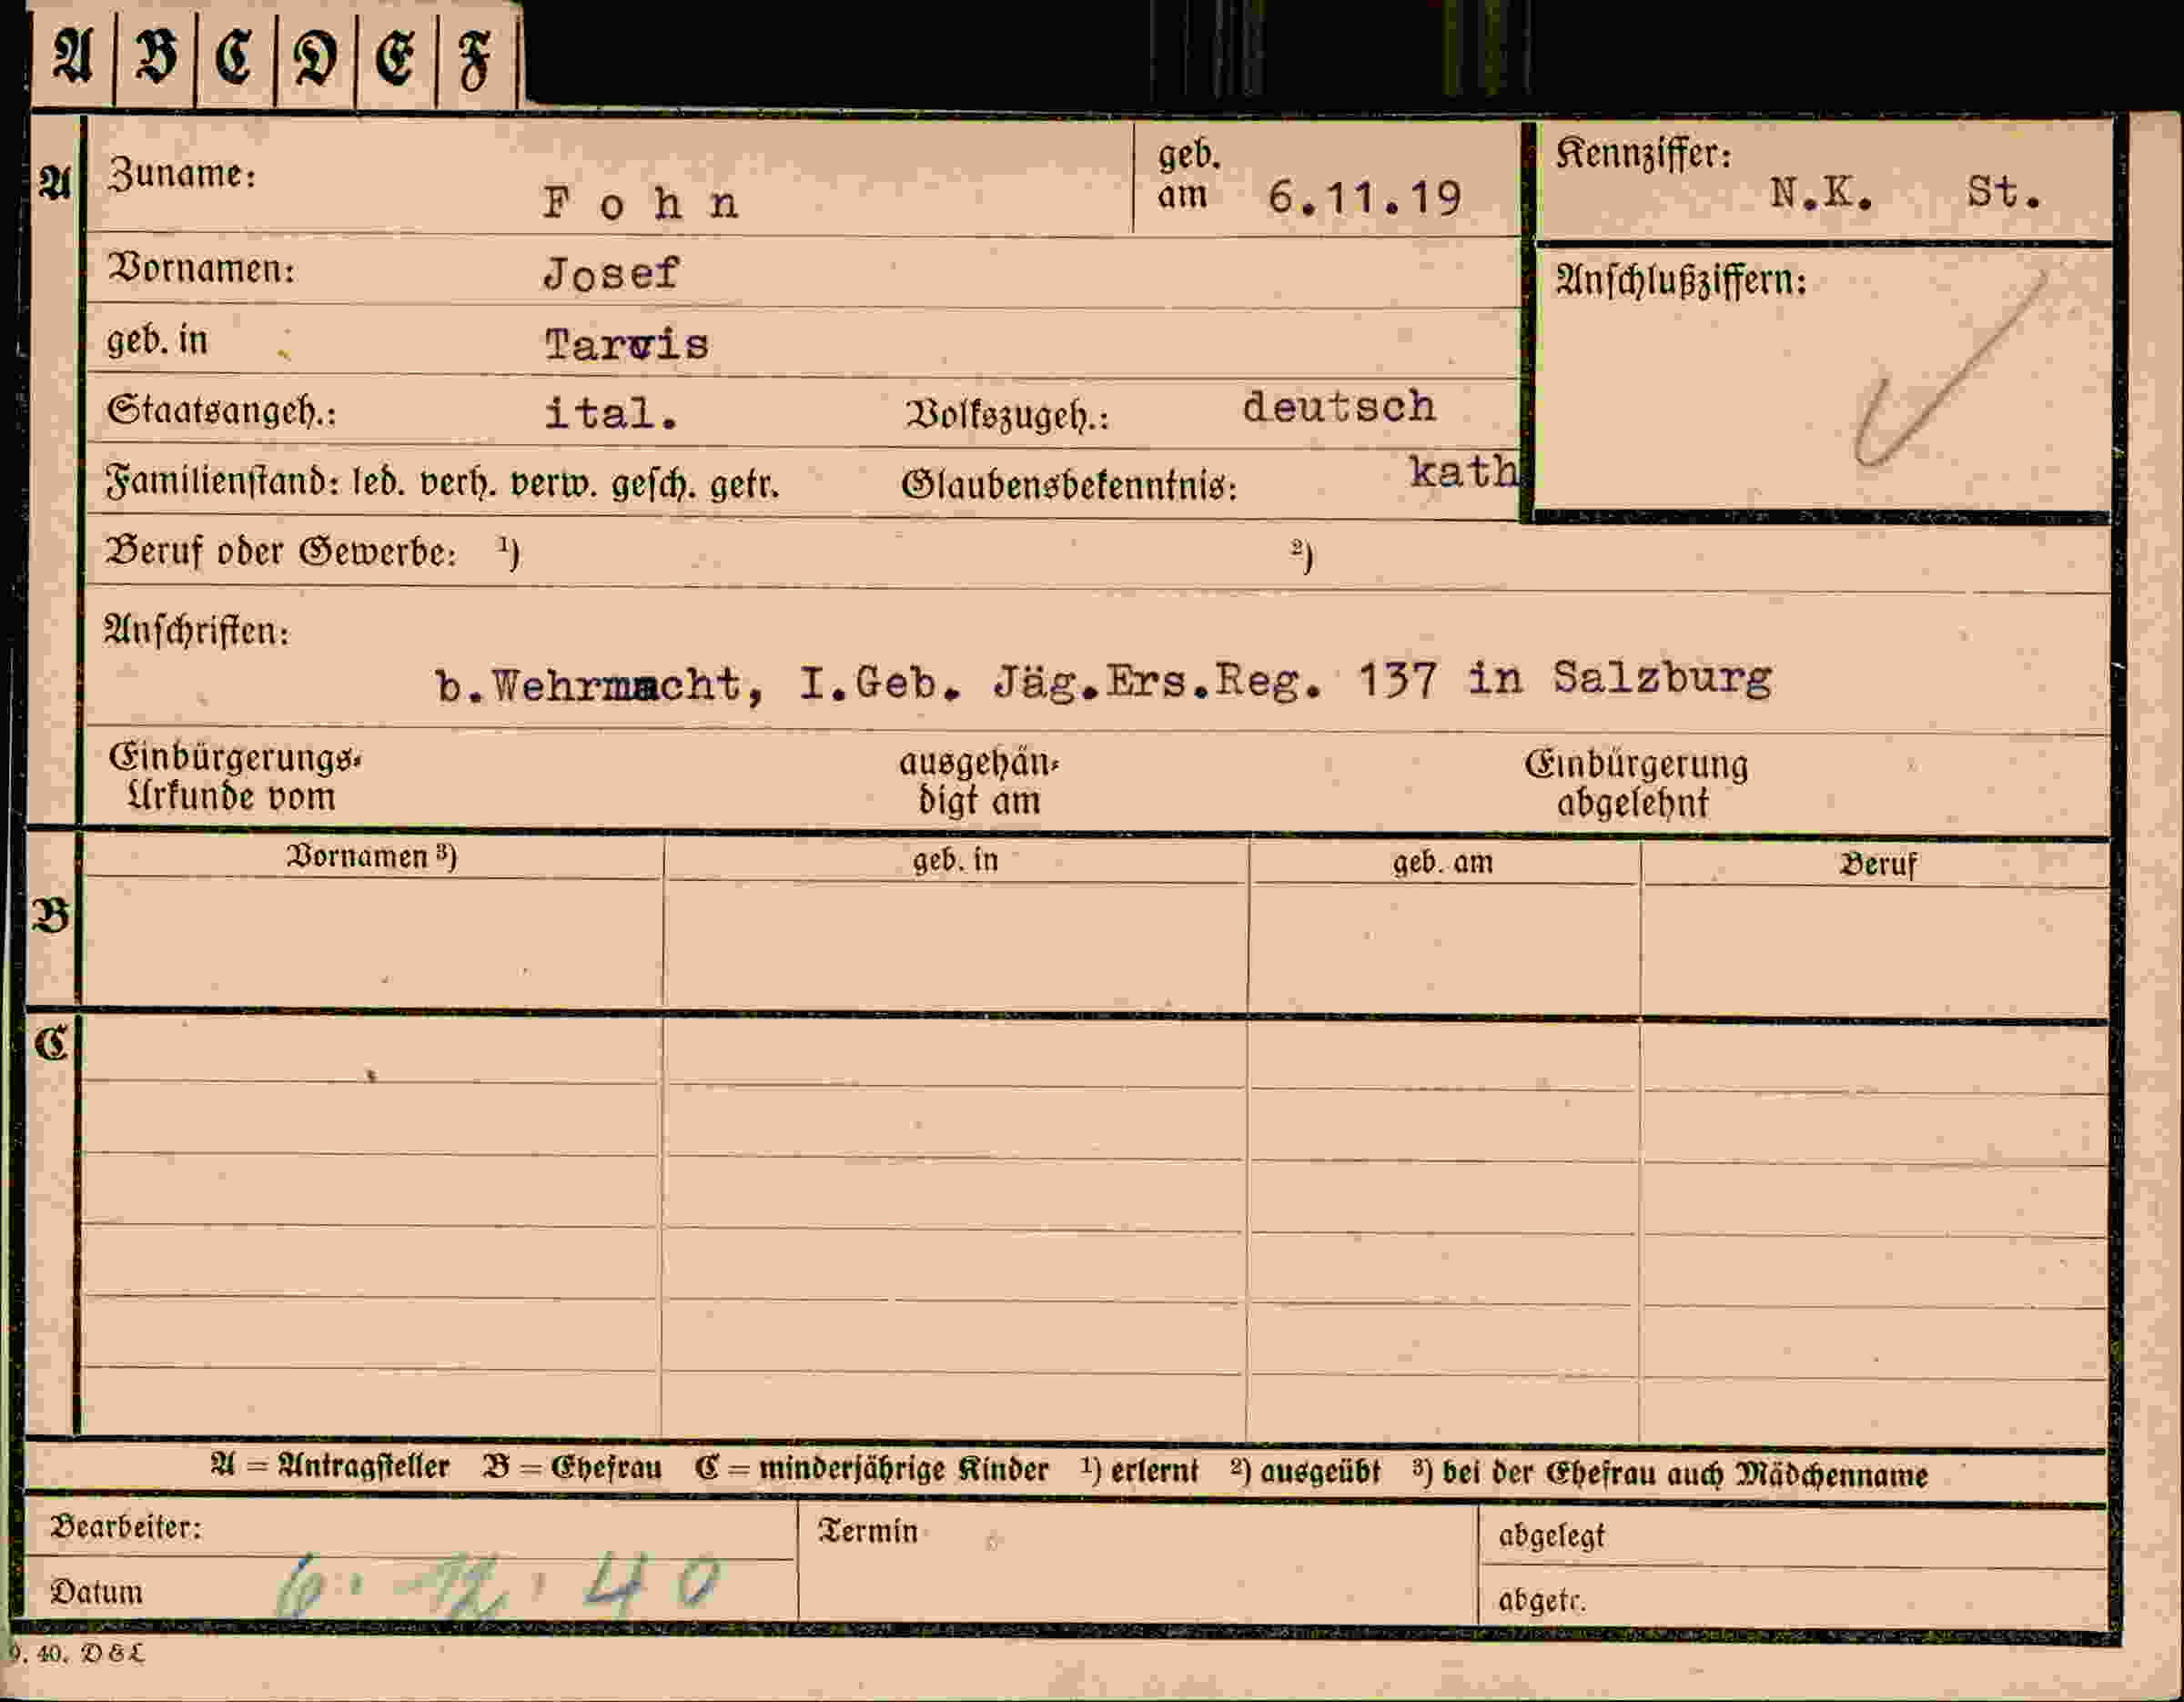 A B C D E F
A Zuname: F o h n geb. am 6.11.19 Kennziffer: N.K. St.
Vornamen: Josef
Anschlußziffern:
geb. in Tarvis
Staatsangeh.: ital. Volkszugeh.: deutsch
Familienstand: led. verh. verw. gesch. getr. Glaubensbekenntnis: kath
Beruf oder Gewerbe: ¹) ²)
Anschriften:
b.Wehrmacht, I.Geb. Jäg.Ers.Reg. 137 in Salzburg
Einbürgerungs- ausgehän- Einbürgerung
Urkunde vom digt am abgelehnt
Vornamen ³) geb. in geb. am Beruf
B
C
A = Antragsteller B = Ehefrau C = minderjährige Kinder ¹) erlernt ²) ausgeübt ³) bei der Ehefrau auch Mädchenname
Bearbeiter: Termin abgelegt
Datum 6. 12. 40 abgetr.
9. 40. D & L